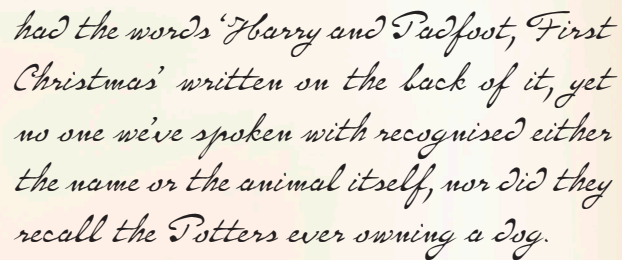 had the words ‘Harry and Padfoot, First
Christmas’ written on the back of it, yet
no one we’ve spoken with recognised either
the name or the animal itself, nor did they
recall the Potters ever owning a dog.